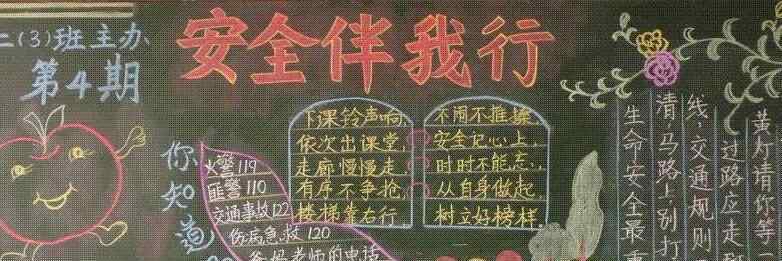 二(3)班主办
第4期
安全伴我行
你知道
火警119
匪警110
交通事故122
伤病急救120
爸妈老师的电话
下课铃声响,
依次出课堂,
走廊慢慢走,
有序不争抢,
楼梯靠右行,
不闹不推搡,
安全记心上,
时时不能忘,
从自身做起,
树立好榜样。
黄灯请你等一
过路应走斑
线,交通规则
清,马路上别打
生命安全最重